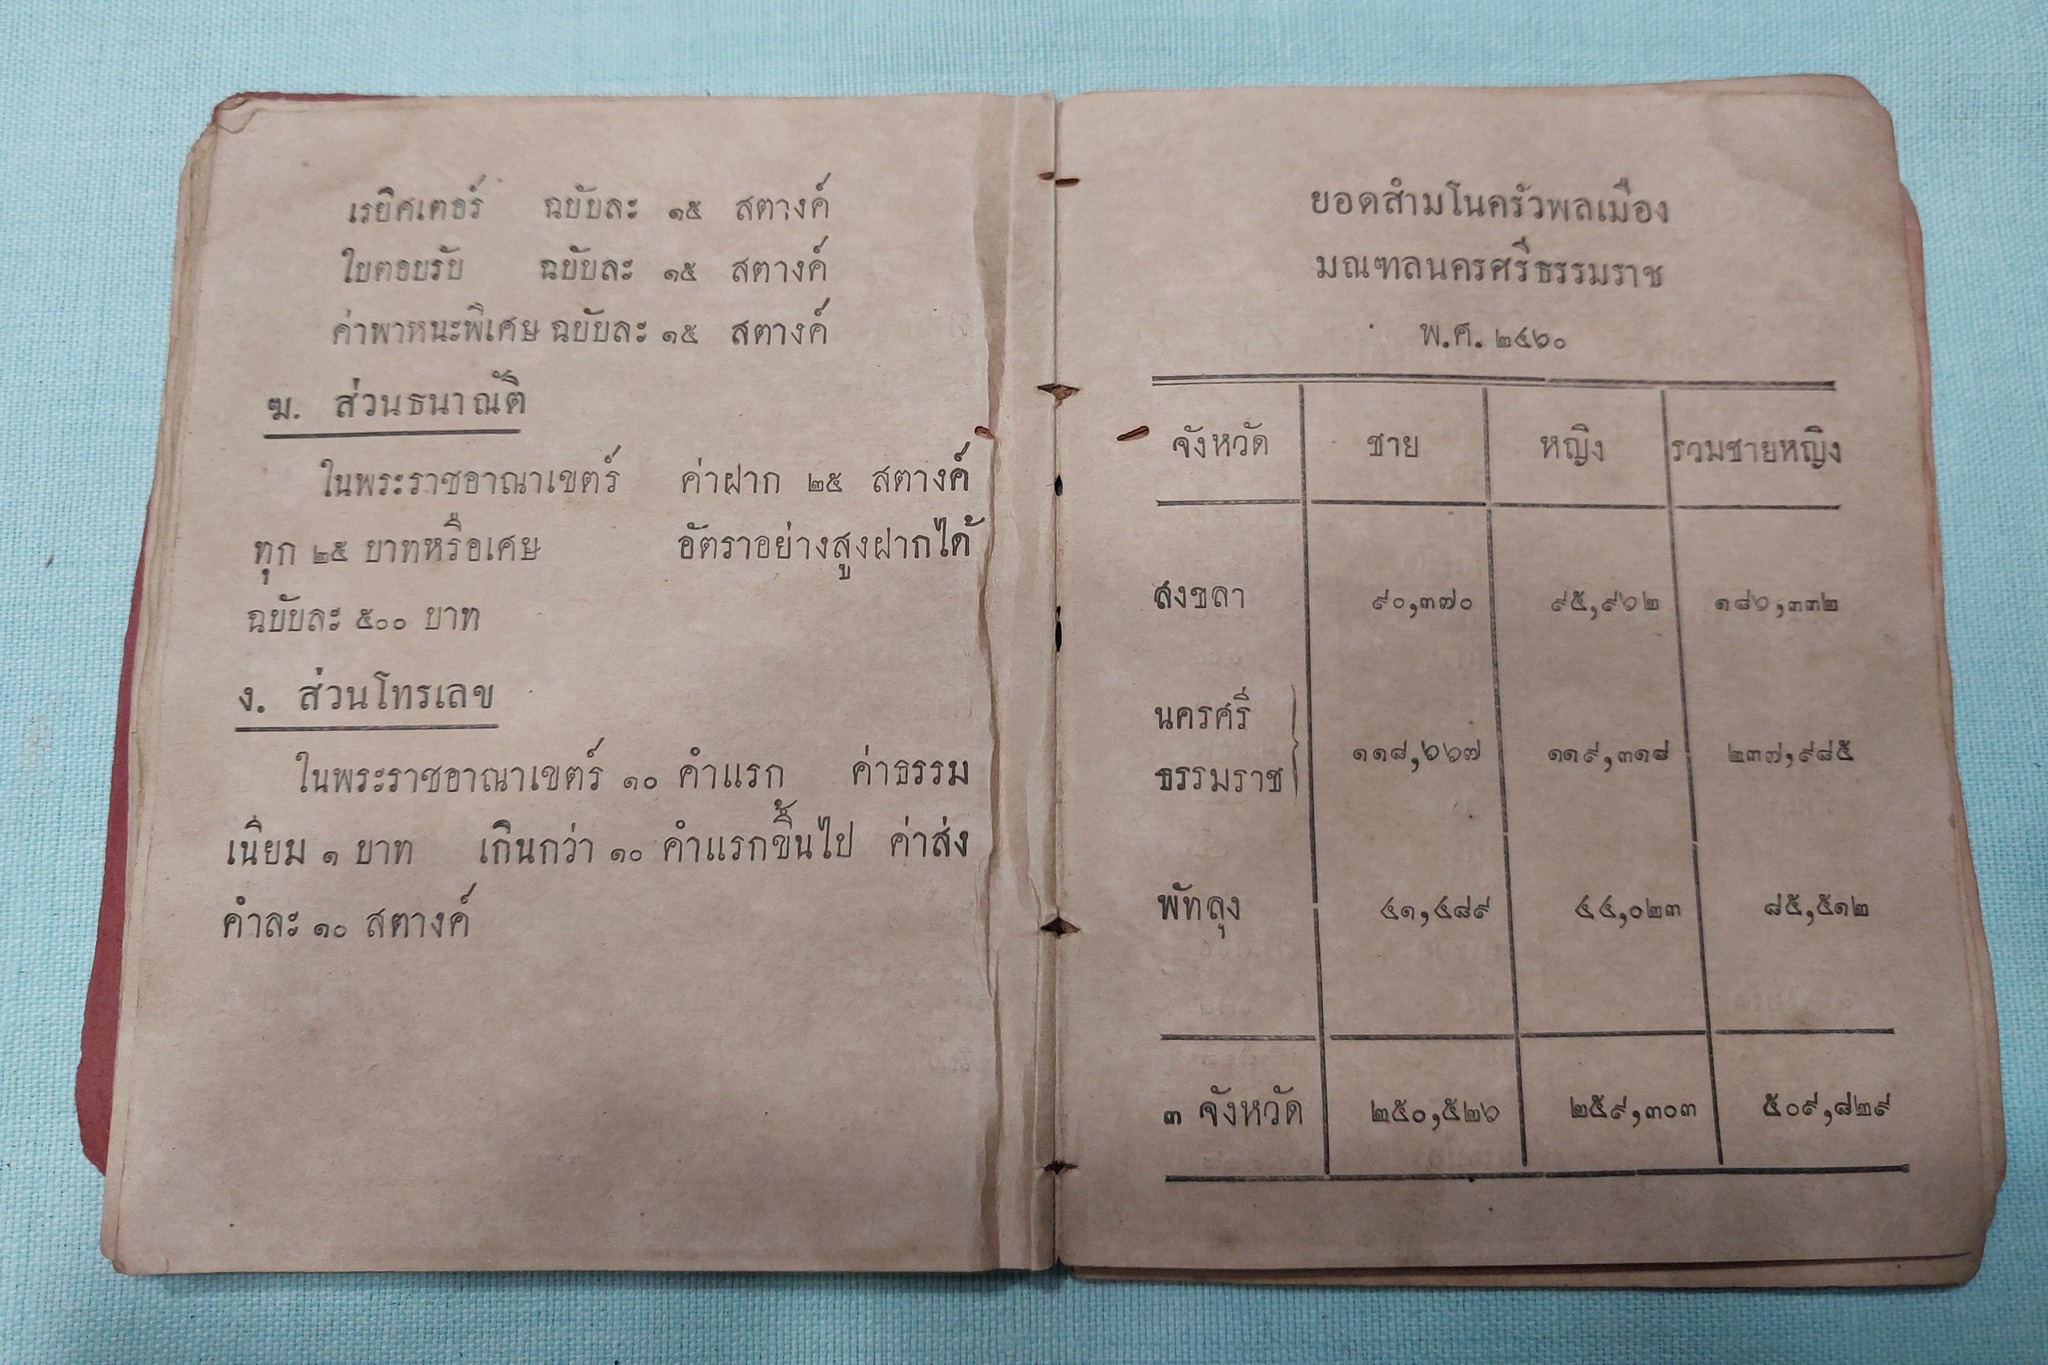 เรยิศเตอร์ ฉบับละ ๑๕ สตางค์
ใบตอบรับ ฉบับละ ๑๕ สตางค์
ค่าพาหนะพิเศษ ฉบับละ ๑๕ สตางค์
ฆ. ส่วนธนาณัติ
ในพระราชอาณาเขตร์ ค่าฝาก ๒๕ สตางค์
ทุก ๒๕ บาทหรือเศษ อัตราอย่างสูงฝากได้
ฉบับละ ๕๐๐ บาท
ง. ส่วนโทรเลข
ในพระราชอาณาเขตร์ ๑๐ คำแรก ค่าธรรม
เนียม ๑ บาท เกินกว่า ๑๐ คำแรกขึ้นไป ค่าส่ง
คำละ ๑๐ สตางค์
ยอดสำมโนครัวพลเมือง
มณฑลนครศรีธรรมราช
พ.ศ. ๒๔๖๐
จังหวัด ชาย หญิง รวมชายหญิง
สงขลา ๙๐,๓๗๐ ๙๕,๙๖๒ ๑๘๖,๓๓๒
นครศรี
ธรรมราช ๑๑๘,๖๖๗ ๑๑๙,๓๑๘ ๒๓๗,๙๘๕
พัทลุง ๔๑,๔๘๙ ๔๔,๐๒๓ ๘๕,๕๑๒
๓ จังหวัด ๒๕๐,๕๒๖ ๒๕๙,๓๐๓ ๕๐๙,๘๒๙